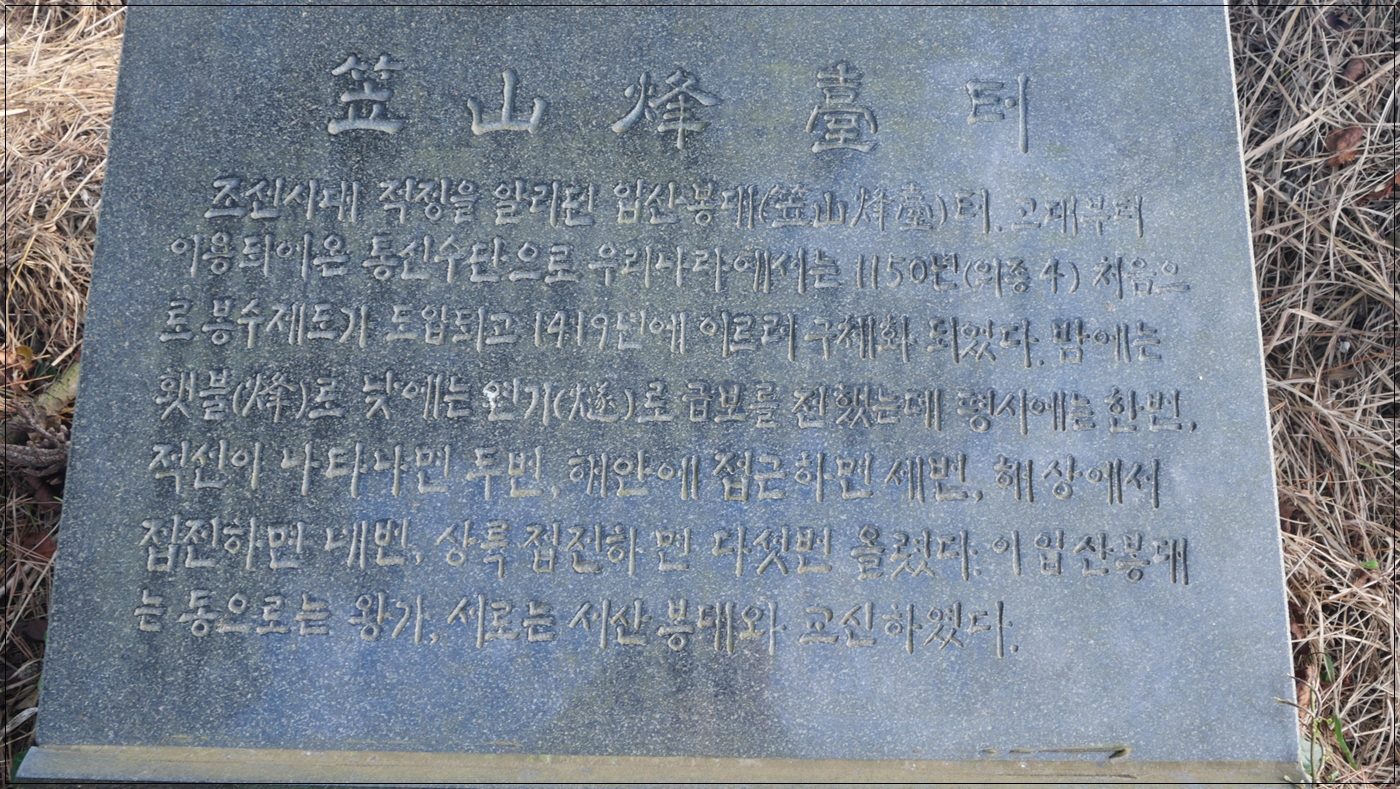 笠山烽臺터
조선시대 적정을 알리던 입산봉대(笠山烽臺)터. 고대부터
이용되어온 통신수단으로 우리나라에서는 1150년(의종4) 처음으
로 봉수제도가 도입되고 1419년에 이르러 구체화 되었다. 밤에는
횃불(烽)로 낮에는 연기(燧)로 급보를 전했는데 평시에는 한번,
적선이 나타나면 두번, 해안에 접근하면 세번, 해상에서
접전하면 네번, 상륙 접전하면 다섯번 올렸다. 이 입산봉대
는 동으로는 왕가, 서로는 서산봉대와 교신하였다.